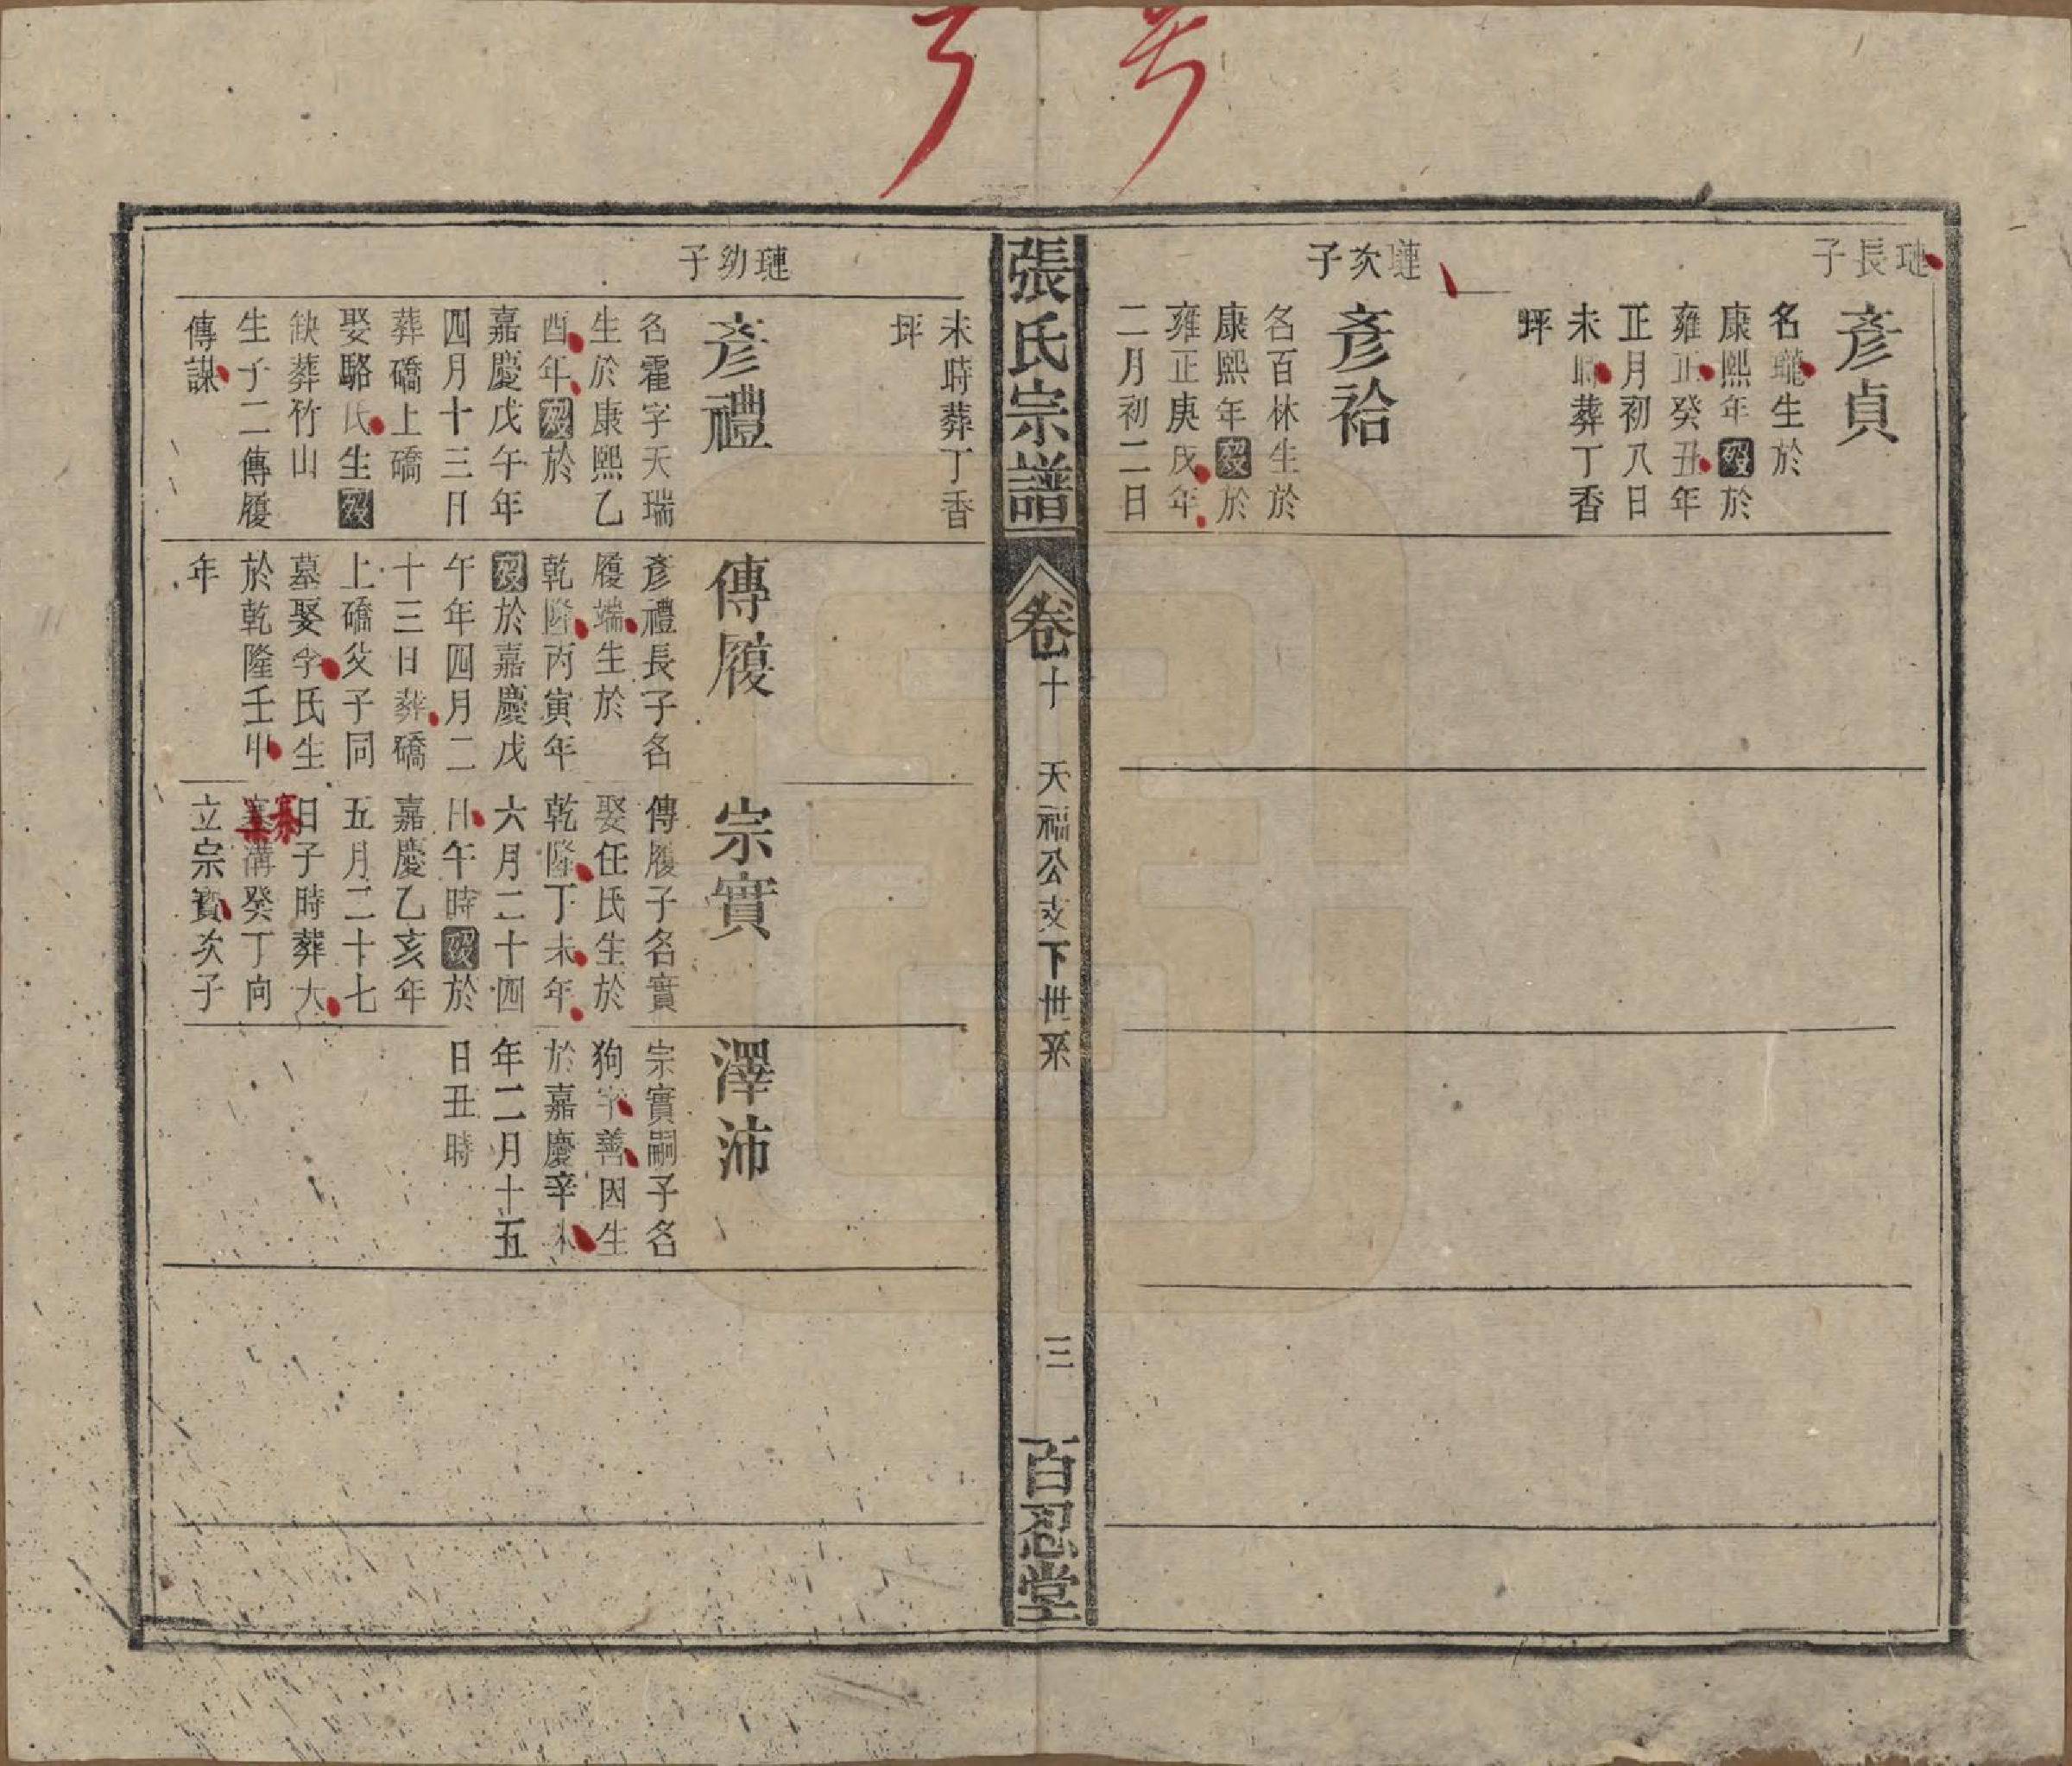 璉長子
彥貞
名瓏生於
康熙年歿於
雍正癸丑年
正月初八日
未時葬丁香
坪
璉次子
彥袷
名百林生於
康熙年歿於
雍正庚戌年
二月初二日
張氏宗譜
卷十
天福公支下世系
三
百忍堂
未時葬丁香
坪
璉幼子
彥禮
名霍字天瑞
生於康熙乙
酉年歿於
嘉慶戊午年
四月十三日
葬礄上礄
娶駱氏生歿
缺葬竹山
生子二傳履
傳謀
傳履
彥禮長子名
履端生於
乾隆丙寅年
歿於嘉慶戊
午年四月二
十三日葬礄
上礄父子同
墓娶李氏生
於乾隆壬申
年
宗實
傳履子名實
娶任氏生於
乾隆丁未年
六月二十四
日午時歿於
嘉慶乙亥年
五月二十七
日子時葬大
寨溝癸丁向
立宗寶次子
澤沛
宗實嗣子名
狗字善因生
於嘉慶辛未
年二月十五
日丑時